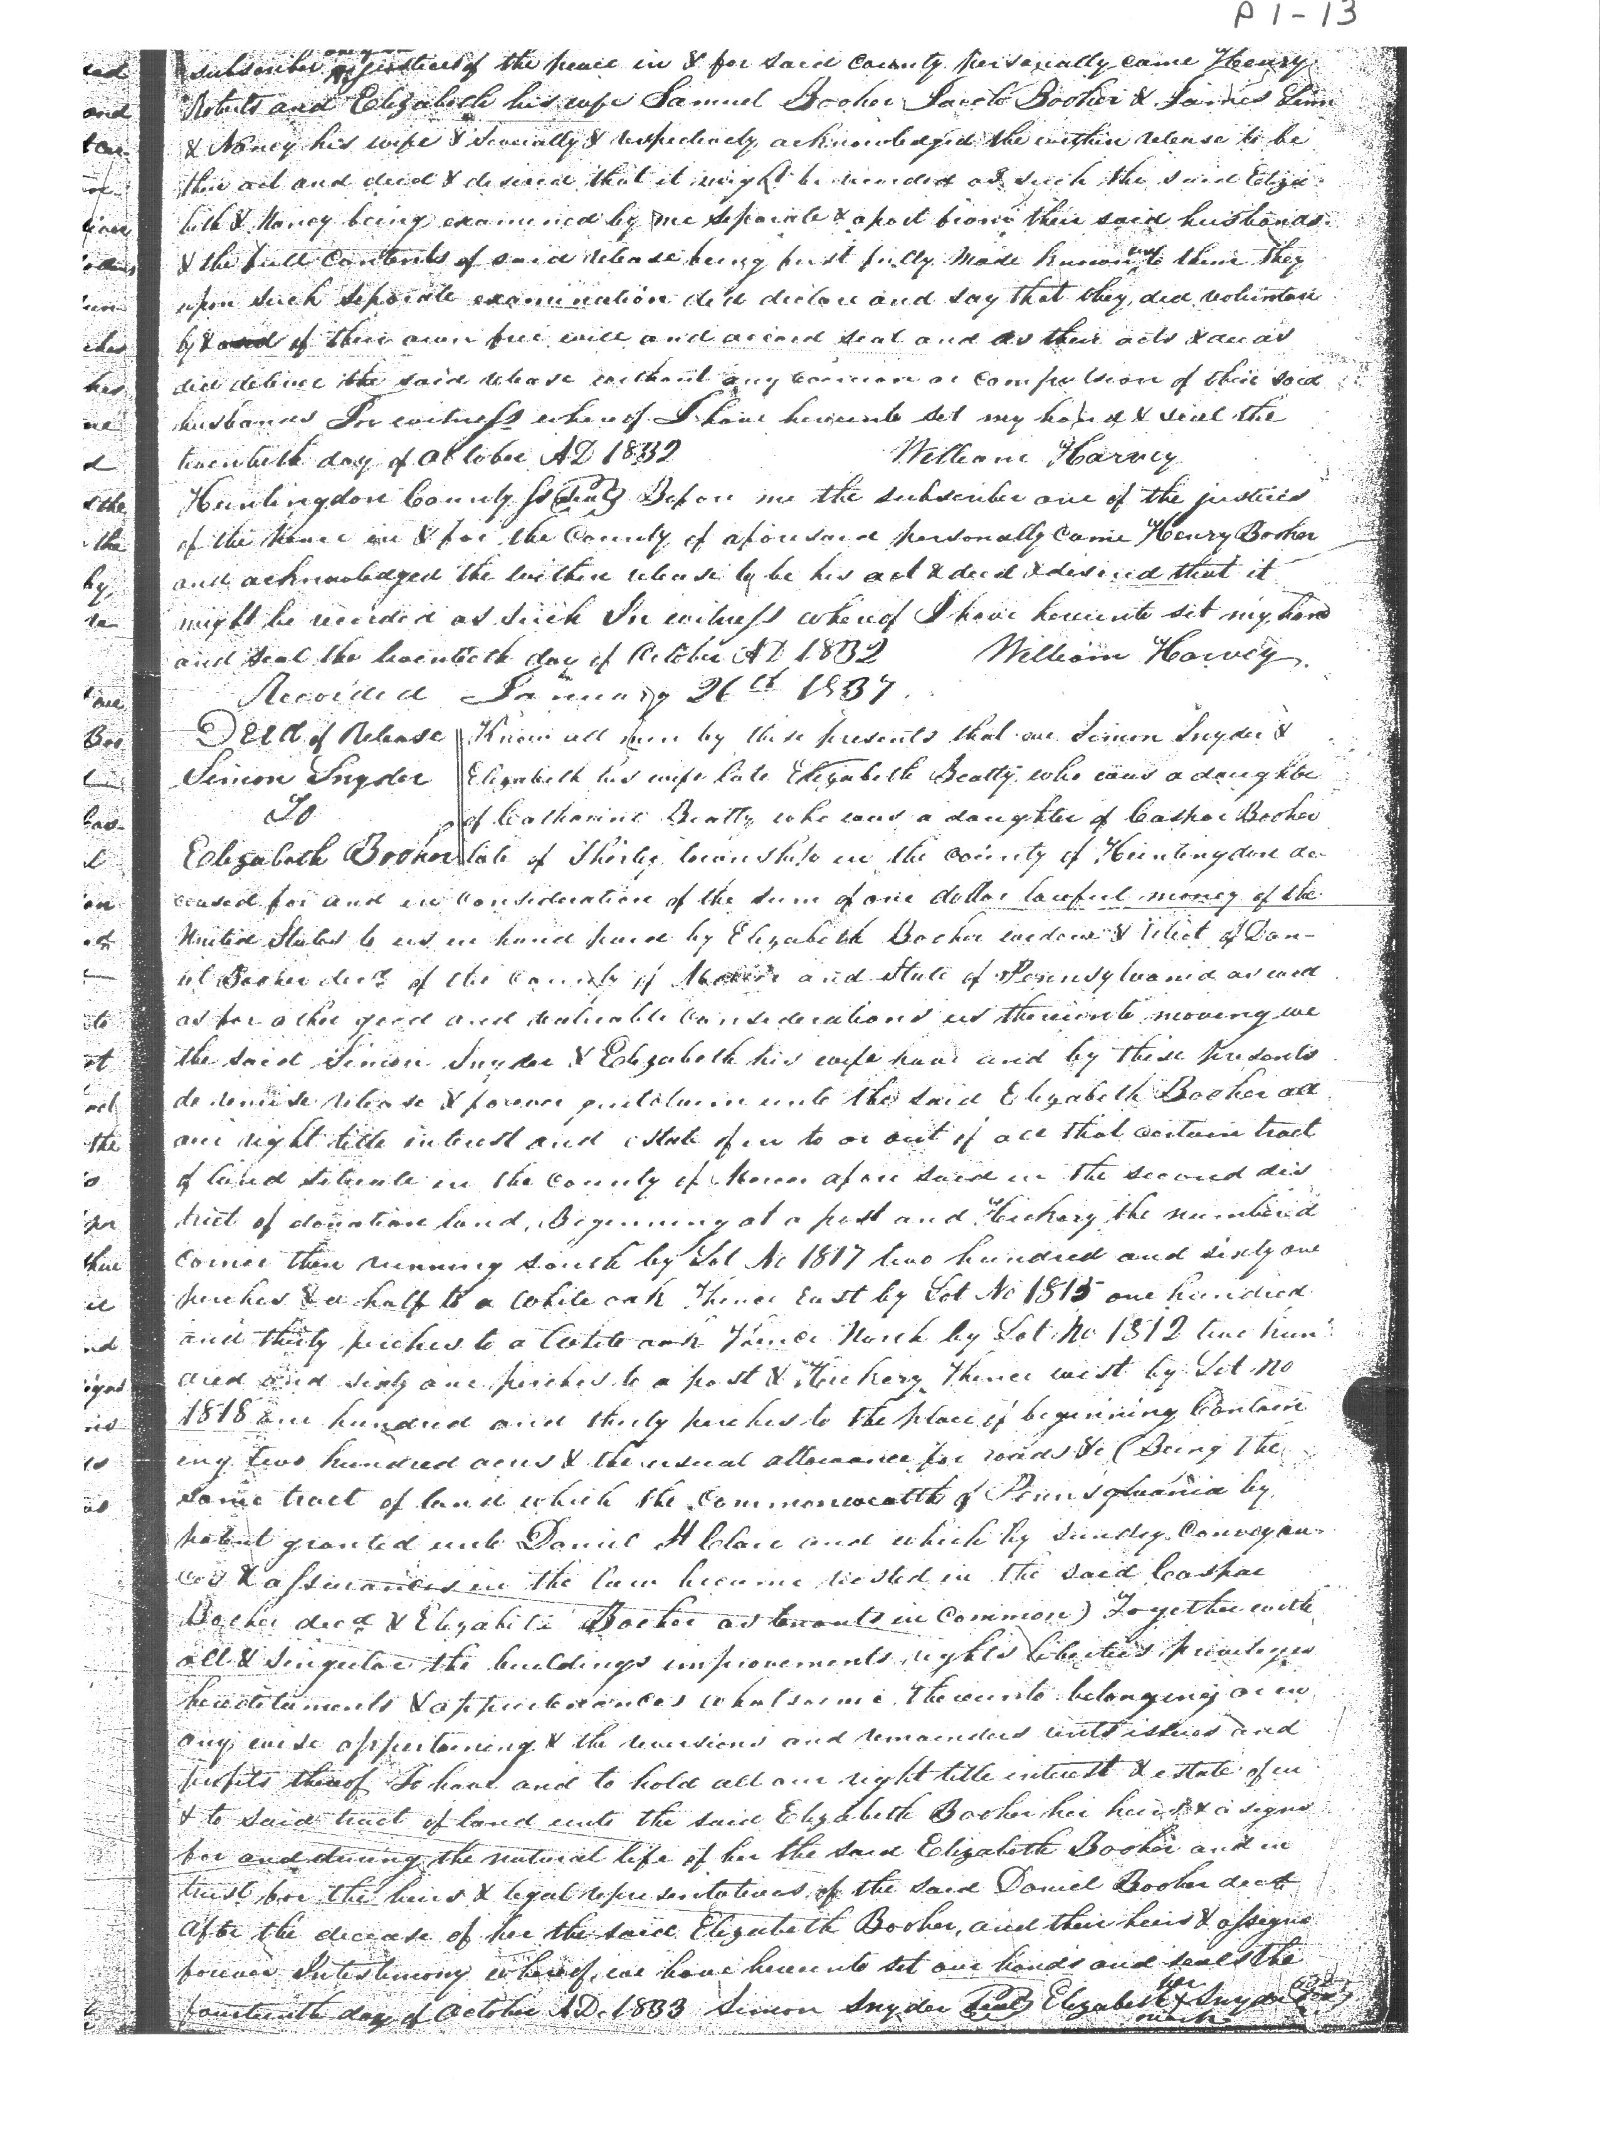 P 1-13
subscriber one of the justices of the peace in & for said county personally came Henry
Roberts and Elizabeth his wife Samuel Booher Jacob Booher & James Linn
& Nancy his wife & severally & respectively acknowledged the within release to be
their act and deed & desired that it might be recorded as such the said Eliza
beth & Nancy being examined by me separate & apart from their said husbands
& the full contents of said release being first fully made known unto them they
upon such separate examination did declare and say that they did voluntari
ly & of their own free will and accord seal and as their acts & deeds
did deliver the said release without any coercion or compulsion of their said
husbands In witness whereof I have hereunto set my hand & seal the
twentieth day of October AD 1832 William Harvey
Huntingdon County Ss Seal Before me the subscriber one of the justices
of the peace in & for the County of aforesaid personally came Henry Booher
and acknowledged the within release to be his act & deed & desired that it
might be recorded as such In witness whereof I have hereunto set my hand
and seal the twentieth day of October AD 1832 William Harvey
Recorded January 26th 1837
Deed of Release Know all men by these presents that we Simon Snyder &
Simon Snyder Elizabeth his wife late Elizabeth Beatty who was a daughter
To of Catharine Beatty who was a daughter of Caspar Booher
Elizabeth Booher late of Shirley township in the county of Huntingdon de
ceased for and in consideration of the sum of one dollar lawful money of the
United States to us in hand paid by Elizabeth Booher widow & relict of Dan-
iel Booher decd of the County of and State of Pennsylvania as well
as for other good and valuable considerations us thereunto moving we
the said Simon Snyder & Elizabeth his wife have and by these presents
do remise release & forever quitclaim unto the said Elizabeth Booher all
our right title interest and estate of in to or out of all that certain tract
of land situate in the county of Mercer afore said in the second dis
trict of donation land, Beginning at a post and Hickory the numbered
corner then running south by Lot No 1817 two hundred and sixty one
perches & a half to a White oak Thence East by Lot No 1815 one hundred
and thirty perches to a White oak Thence North by Lot No 1812 two hun
dred and sixty one perches to a post & Hickory Thence west by Lot No
1818 one hundred and thirty perches to the place of beginning Contain
ing two hundred acres & the usual allowance for roads &c (Being the
same tract of land which the Commonwealth of Pennsylvania by
patent granted unto Daniel and which by sundry Conveyan
ces & assurances in the law became vested in the said Caspar
Booher decd & Elizabeth Booher as tenants in common) Together with
all & singular the buildings improvements rights liberties privileges
hereditaments & appurtenances whatsoever thereunto belonging or in
any wise appertaining & the reversions and remainders rents issues and
profits thereof To have and to hold all our right title interest & estate of in
& to said tract of land unto the said Elizabeth Booher her heirs & asigns
for and during the natural life of her the said Elizabeth Booher and in
trust for the heirs & legal representatives of the said Daniel Booher decd
after the decease of her the said Elizabeth Booher, and their heirs & assigns
forever In testimony whereof, we have hereunto set our hands and seals the
fourteenth day of October AD. 1833 Simon Snyder Seal Elizabeth her x mark Snyder Seal